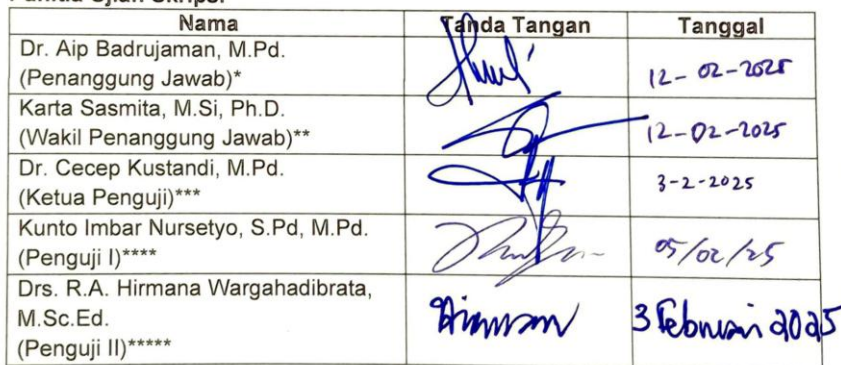 Panitia Ujian Skripsi
Nama Tanda Tangan Tanggal
Dr. Aip Badrujaman, M.Pd.
(Penanggung Jawab)* 12-02-2025
Karta Sasmita, M.Si, Ph.D.
(Wakil Penanggung Jawab)** 12-02-2025
Dr. Cecep Kustandi, M.Pd.
(Ketua Penguji)*** 3-2-2025
Kunto Imbar Nursetyo, S.Pd, M.Pd.
(Penguji I)**** 05/02/25
Drs. R.A. Hirmana Wargahadibrata,
M.Sc.Ed. 3 Februari 2025
(Penguji II)*****